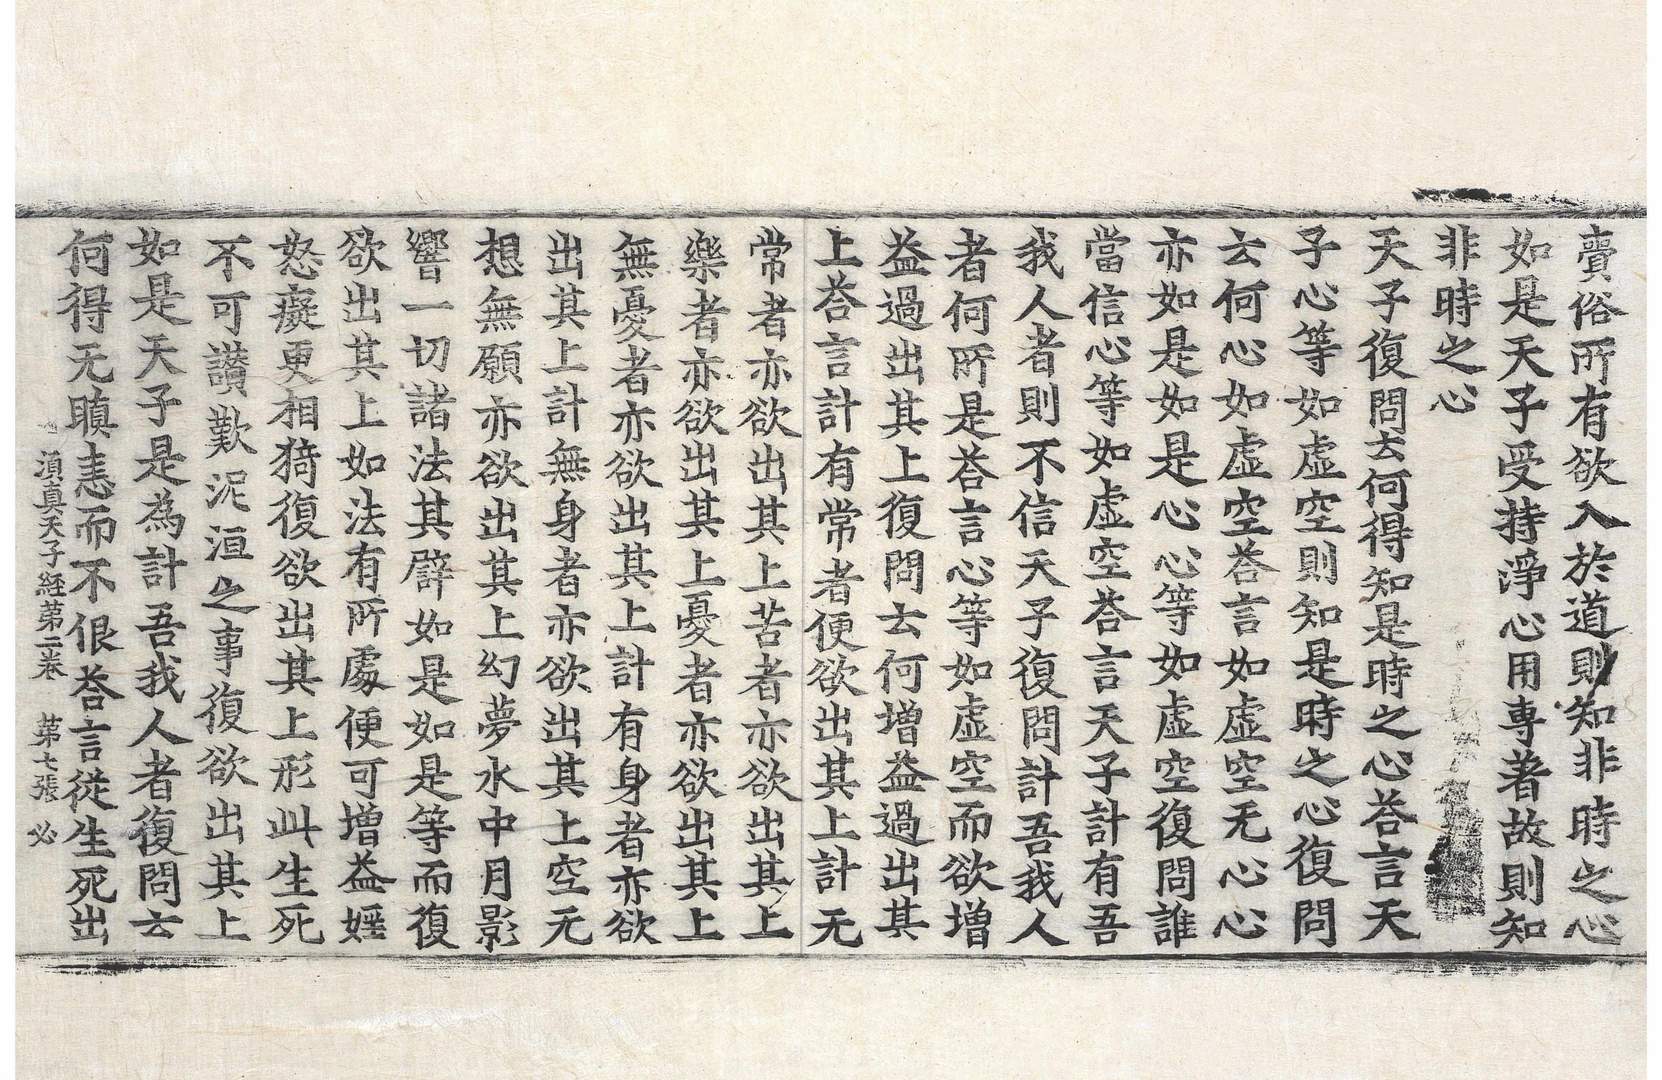 賣俗所有欲入於道則知非時之心
如是天子受持淨心用專著故則知
非時之心
天子復問云何得知是時之心荅言天
子心等如虛空則知是時之心復問
云何心如虛空荅言如虛空无心心
亦如是如是心心等如虛空復問誰
當信心等如虛空荅言天子計有吾
我人者則不信天子復問計吾我人
者何所是荅言心等如虛空而欲增
益過出其上復問云何增益過出其
上荅言計有常者便欲出其上計无
常者亦欲出其上苦者亦欲出其上
樂者亦欲出其上憂者亦欲出其上
無憂者亦欲出其上計有身者亦欲
出其上計無身者亦欲出其上空无
想無願亦欲出其上幻夢水中月影
響一切諸法其譬如是如是等而復
欲出其上如法有所處便可增益婬
怒癡更相猗復欲出其上形此生死
不可讚歎泥洹之事復欲出其上
如是天子是為計吾我人者復問云
何得无瞋恚而不恨荅言從生死出
湏真天子經第二卷 第七張 必